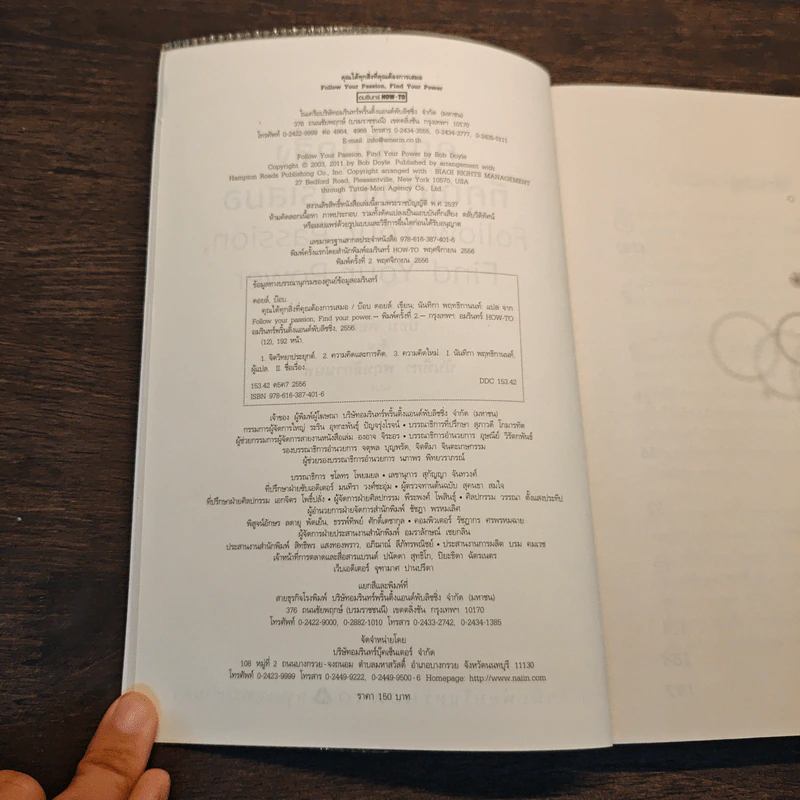 คุณได้ทุกสิ่งที่คุณต้องการเสมอ
Follow Your Passion, Find Your Power
อมรินทร์ HOW-TO
ในเครือบริษัทอมรินทร์พริ้นติ้งแอนด์พับลิชชิ่ง จำกัด (มหาชน)
376 ถนนชัยพฤกษ์ (บรมราชชนนี) เขตตลิ่งชัน กรุงเทพฯ 10170
โทรศัพท์ 0-2422-9999 ต่อ 4964, 4969 โทรสาร 0-2434-3555, 0-2434-3777, 0-2435-5111
E-mail: info@amarin.co.th
Follow Your Passion, Find Your Power by Bob Doyle
Copyright © 2003, 2011 by Bob Doyle. Published by arrangement with
Hampton Roads Publishing Co., Inc. Copyright arranged with : BIAGI RIGHTS MANAGEMENT
27 Bedford Road, Pleasantville, New York 10570, USA
through Tuttle-Mori Agency Co., Ltd.
สงวนลิขสิทธิ์หนังสือเล่มนี้ตามพระราชบัญญัติ พ.ศ. 2537
ห้ามคัดลอกเนื้อหา ภาพประกอบ รวมทั้งดัดแปลงเป็นแถบบันทึกเสียง ตลับวีดิทัศน์
หรือเผยแพร่ด้วยรูปแบบและวิธีการอื่นใดก่อนได้รับอนุญาต
เลขมาตรฐานสากลประจำหนังสือ 978-616-387-401-6
พิมพ์ครั้งแรกโดยสำนักพิมพ์อมรินทร์ HOW-TO พฤศจิกายน 2556
พิมพ์ครั้งที่ 2 พฤศจิกายน 2556
ข้อมูลทางบรรณานุกรมของศูนย์ข้อมูลอมรินทร์
ดอยล์, บ๊อบ.
คุณได้ทุกสิ่งที่คุณต้องการเสมอ / บ๊อบ ดอยล์, เขียน; นันทิกา พฤทธิกานนท์, แปล จาก
Follow your passion, Find your power.-- พิมพ์ครั้งที่ 2.-- กรุงเทพฯ: อมรินทร์ HOW-TO
อมรินทร์พริ้นติ้งแอนด์พับลิชชิ่ง, 2556.
(12), 192 หน้า.
1. จิตวิทยาประยุกต์. 2. ความคิดและการคิด. 3. ความคิดใหม่. I. นันทิกา พฤทธิกานนท์,
ผู้แปล. II. ชื่อเรื่อง.
153.42 ด5ค7 2556 DDC 153.42
ISBN 978-616-387-401-6
เจ้าของ ผู้พิมพ์ผู้โฆษณา บริษัทอมรินทร์พริ้นติ้งแอนด์พับลิชชิ่ง จำกัด (มหาชน)
กรรมการผู้จัดการใหญ่ ระริน อุทกะพันธุ์ ปัญจรุ่งโรจน์ • บรรณาธิการที่ปรึกษา สุภาวดี โกมารทัต
ผู้ช่วยกรรมการผู้จัดการสายงานหนังสือเล่ม องอาจ จิระอร • บรรณาธิการอำนวยการ อุษณีย์ วิรัตกพันธ์
รองบรรณาธิการอำนวยการ จตุพล บุญพรัด, จิตติมา จินตะเกษกรรม
ผู้ช่วยรองบรรณาธิการอำนวยการ นภาพร พิทยวราภรณ์
บรรณาธิการ ชโลทร โพยมยล • เลขานุการ สุกัญญา จันทวงศ์
ที่ปรึกษาฝ่ายซับเอดิเตอร์ มนทิรา วงศ์ชะอุ่ม • ผู้ตรวจทานต้นฉบับ สุคนธา สมใจ
ที่ปรึกษาฝ่ายศิลปกรรม เอกจิตร โพธิ์ปลั่ง • ผู้จัดการฝ่ายศิลปกรรม พีระพงศ์ โพสินธุ์ • ศิลปกรรม วรรณา ตั้งแสงประทีป
ผู้อำนวยการฝ่ายจัดการสำนักพิมพ์ ชัชฎา พรหมเลิศ
พิสูจน์อักษร ลดายุ พัดเย็น, ธรรพ์ทิพย์ ศักดิ์เดชากุล • คอมพิวเตอร์ วัชฎากร ศรพรหมฉาย
ผู้จัดการฝ่ายประสานงานสำนักพิมพ์ อมราลักษณ์ เชยกลิ่น
ประสานงานสำนักพิมพ์ สิทธิพร แสงทองพราว, อภิฌาณ์ ลีภัทรพณิชย์ • ประสานงานการผลิต บรม คมเวช
เจ้าหน้าที่การตลาดและสื่อสารแบรนด์ ปนัดดา สุทธิโก, ปิยะธิดา ฉัตรเนตร
เว็บเอดิเตอร์ จุฑามาศ ปานปรีดา
แยกสีและพิมพ์ที่
สายธุรกิจโรงพิมพ์ บริษัทอมรินทร์พริ้นติ้งแอนด์พับลิชชิ่ง จำกัด (มหาชน)
376 ถนนชัยพฤกษ์ (บรมราชชนนี) เขตตลิ่งชัน กรุงเทพฯ 10170
โทรศัพท์ 0-2422-9000, 0-2882-1010 โทรสาร 0-2433-2742, 0-2434-1385
จัดจำหน่ายโดย
บริษัทอมรินทร์บุ๊คเซ็นเตอร์ จำกัด
108 หมู่ที่ 2 ถนนบางกรวย-จงถนอม ตำบลมหาสวัสดิ์ อำเภอบางกรวย จังหวัดนนทบุรี 11130
โทรศัพท์ 0-2423-9999 โทรสาร 0-2449-9222, 0-2449-9500-6 Homepage: http://www.naiin.com
ราคา 150 บาท